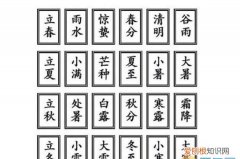 立春 雨水 惊蛰 春分 清明 谷雨
立夏 小满 芒种 夏至 小暑 大暑
立秋 处暑 白露 秋分 寒露 霜降
立冬 小 大 冬至 小 大